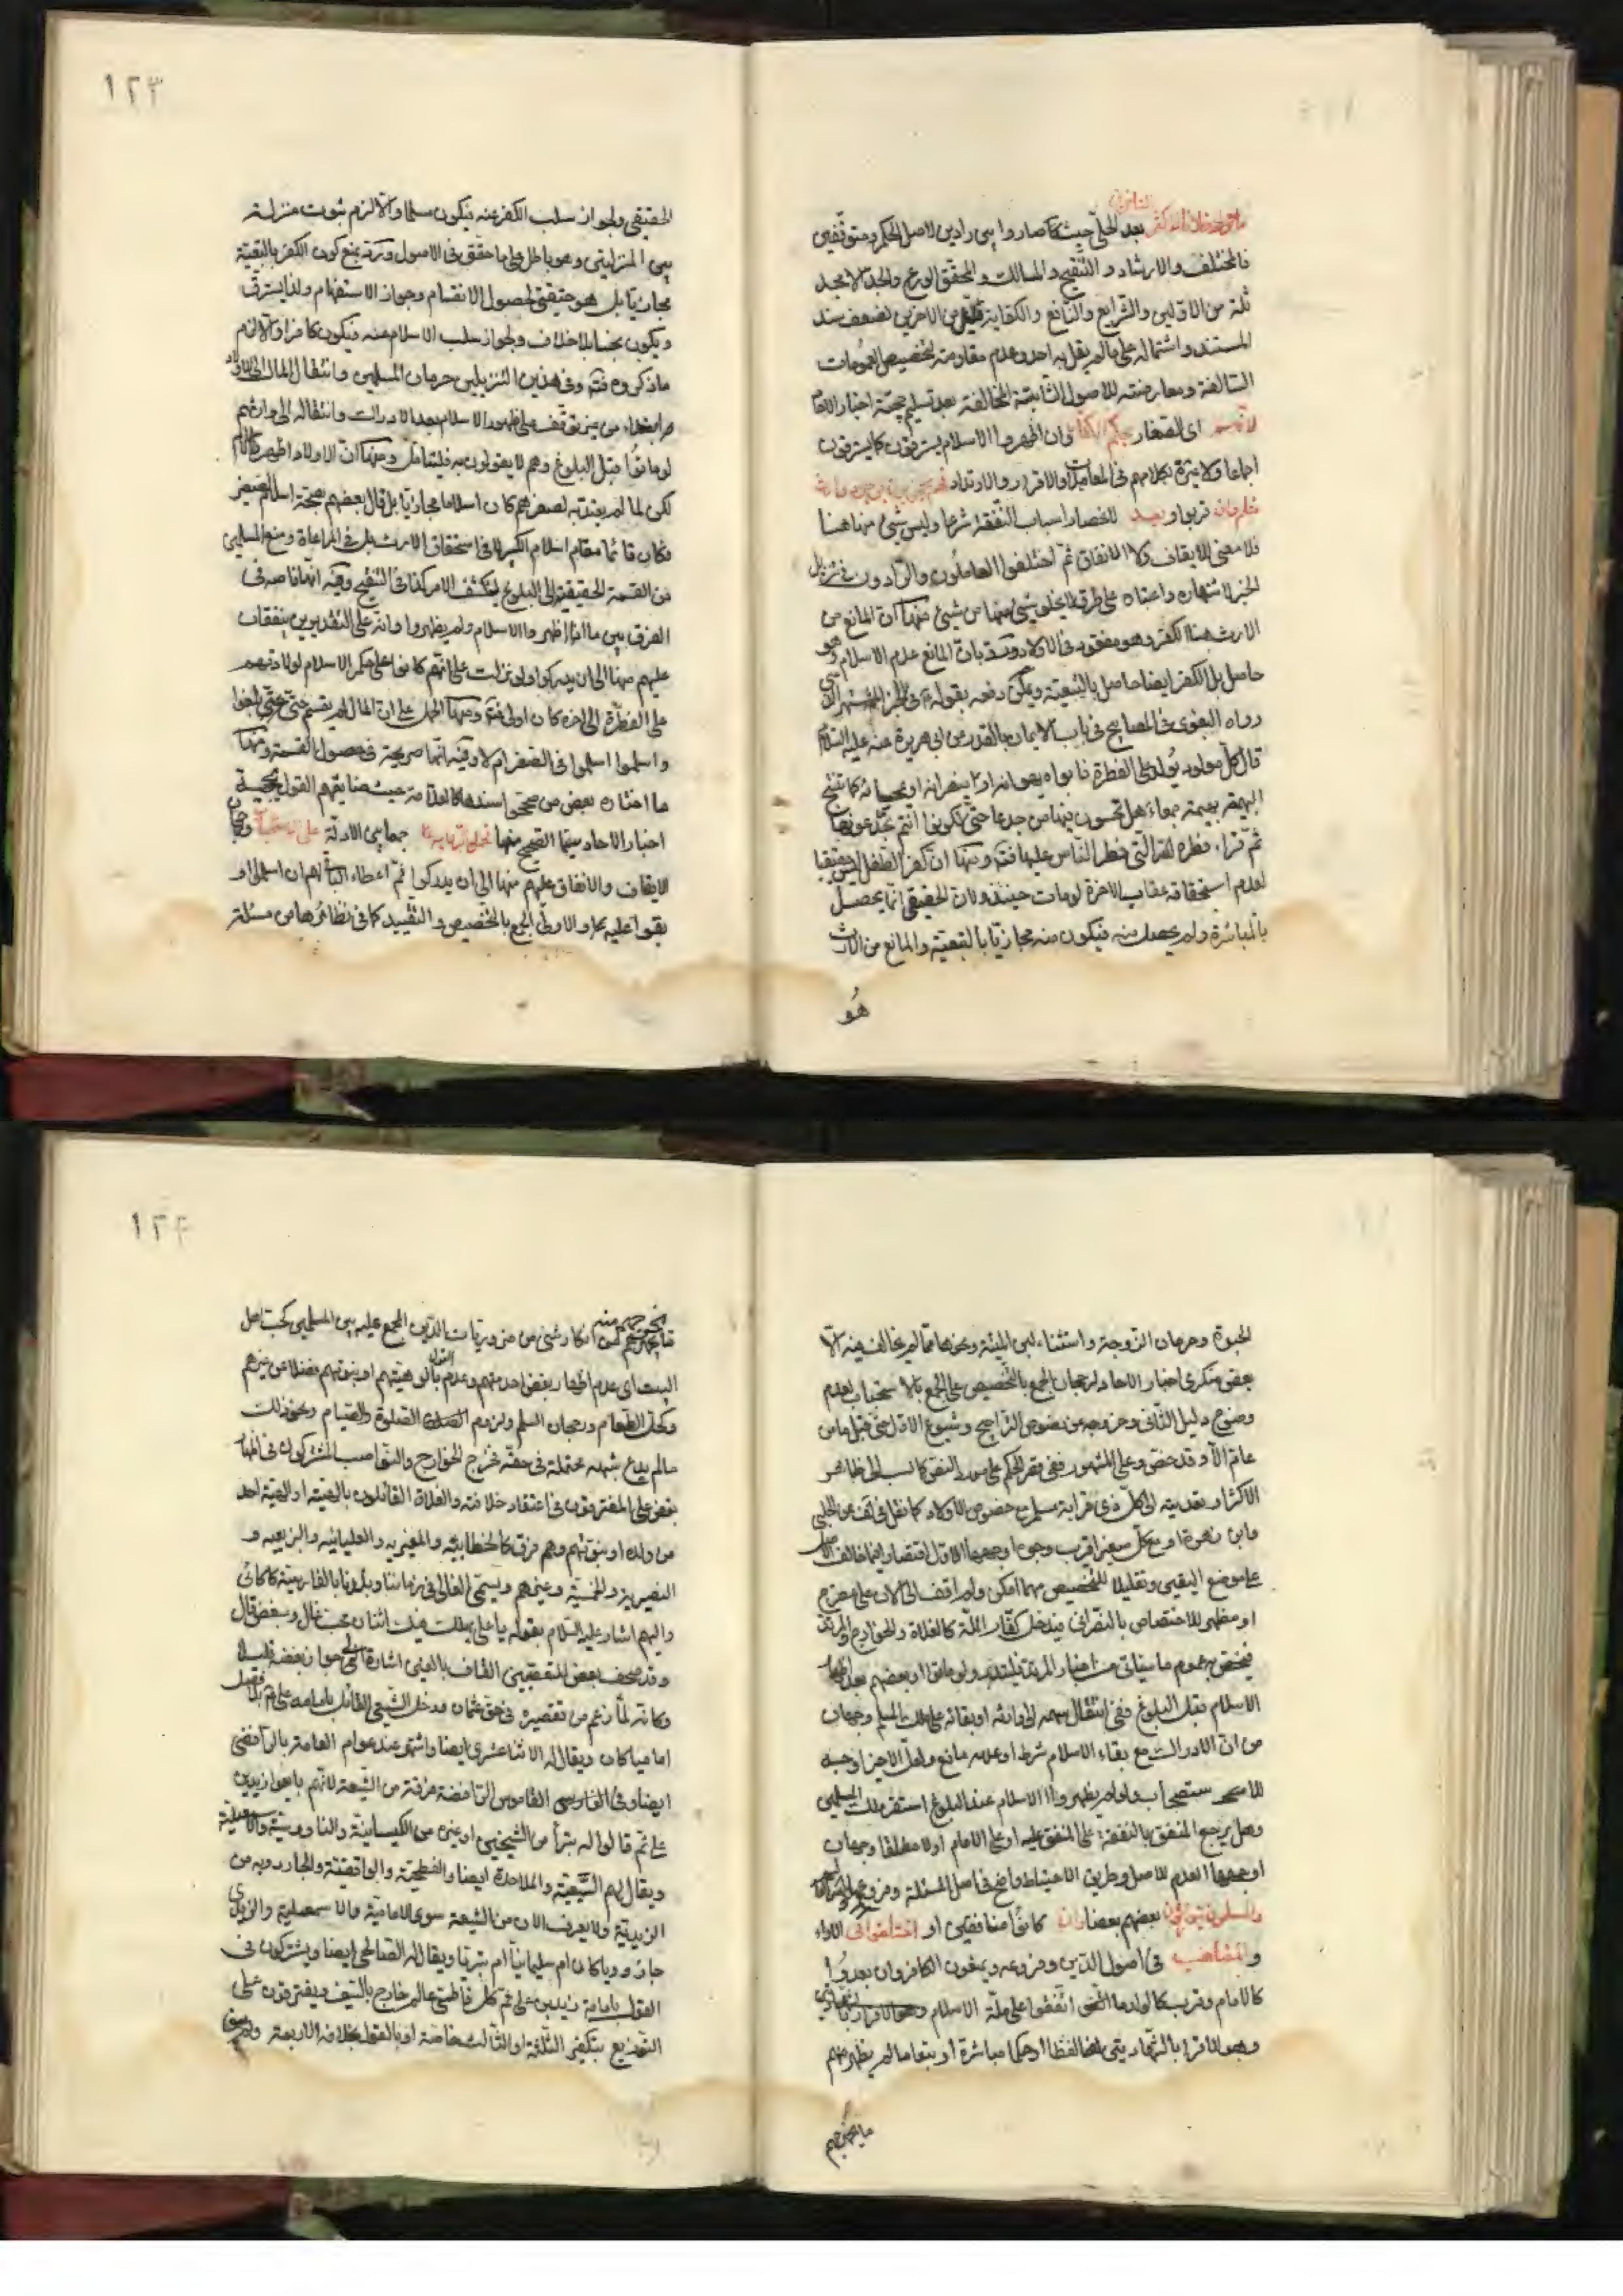 بعد الحلّي حيث كما صاروا بين رادين لاصل الحكم ومتوقّفين
فالمختلف والارشاد والتنقيح والمسالك والمحقق الورع والجدّ الامجد
ثلّة من الاوّلين والشرايع والنافع والكفاية قليل من الاخرين لضعف سند
المستند واشتماله على ما لم يقل به احد وعدم مقاومته لتخصيص العمومات
السالفة ومعارضته للاصول الثابتة المخالفة بعد تسليم حجيّة اخبار الاحاد
اى الصغار بحكم الكفّار وان اظهروا الاسلام يسترقون كما يسترقون
اجماعا ولا عبرة بكلامهم فى المعاملات والاقرار والارتداد
قريب او بعيد لانحصار اسباب النفقة شرعا وليس شيئ منها هنا
فلا معنى للايقاف ولا الانفاق ثم اختلفوا العاملون والرّادون فى تنزيل
الخبر لاشتهاره واعتباره على طرق لا يخلو شيئ منها من شيئ منها ان المانع من
الارث هنا الكفر وهو مفقود فى الاولاد وردّ بان المانع عدم الاسلام وهو
حاصل بل الكفر ايضا حاصل بالتبعيّة ويمكن دفعه بقوله فى الخبر المشتهر الذى
رواه البغوى فى المصابيح فى باب الايمان بالقدر من ابى هريرة عنه عليه السّلام
قال كل مولود يولد على الفطرة فابواه يهودانه او ينصرانه او يمجسانه كما تنتج
البهيمة بهيمة جمعاء هل تحسون فيها من جدعا حتّى تكونوا انتم تجدعونها
ثم قراء فطرة الله الّتى فطر النّاس عليها فتدبر ومنها ان كفر الطفل ليس حقيقيا
لعدم استحقاقه عقاب الاخرة لو مات حينئذ ولان الحقيقى انما يحصل
بالمباشرة ولم يحصل منه فيكون منه مجازيّا بالتبعيّة والمانع من الارث
هُو
١٢٣
الحقيقى ولجواز سلب الكفر عنه فيكون مسلما والّا لزم ثبوت منزلة
بين المنزلتين وهو باطل على ما حقّق فى الاصول وردّ بمنع كون الكفر بالتبعيّة
مجازيّا بل هو حقيقى لحصول الانقسام وجواز الاستفهام ولذا يسترق
ويكون نجسا بلا خلاف ولجواز سلب الاسلام عنه فيكون كافرا والّا لزم
ماذكروه فتدبر وفى هذين التنزيلين حرمان المسلمين وانتقال المال الى الاولاد
من غير توقّف على ظهور الاسلام بعد الادراك وانتقاله الى وارثهم
لو ماتوا قبل البلوغ وهم لا يقولون به فليتامّل ومنها ان الاولاد اظهروا الاسلام
لكن لما لم يعتدّ به لصغرهم كان اسلاما مجازيّا بل قال بعضهم بصحّة اسلام الصغير
فكان قائما مقام اسلام الكبير لا فى استحقاق الارث بل فى المراعاة ومنع المسلمين
من القسمة الحقيقية الى البلوغ لينكشف الامر كذا فى التنقيح وفيه انها قاصرة فى
الفرق بين ما اذا اظهروا الاسلام ولم يظهروا وانه على التقديرين ينفقان
عليهم منها الى ان يدركوا ولو نزلت على انهم كانوا على حكم الاسلام لولادتهم
على الفطرة الى اخره كان اولى فتدبر ومنها الحمل على ان المال لم يقسم حتى بلغوا
واسلموا اسلموا فى الصغر ام لا وفيه انها صريحة فى حصول القسمة ومنها
ما اختاره بعض من صحّحوا سندها كالعلّامة حيث ضايقهم القول بحجيّة
اخبار الاحاد سيّما الصحيح منها جمعا بين الادلة على الاستحباب
الايقاف والانفاق عليهم منها الى ان يدركوا ثم اعطاء الباقى لهم ان اسلموا او
بقوا عليه والاولى الجمع بالتخصيص والتقييد كما فى نظائرها من مسئلة
الحبوة وحرمان الزوجة واستثناء لبن الميتة ونحوها ممّا لم يخالف فيه الّا
بعض منكرى اخبار الاحاد لرجحان الجمع بالتخصيص على الجمع بالاستحباب لعدم
وضوح دليل الثانى وخروجه من نصوص التراجيح وشيوع الاول حتى قيل ما من
عامّ الّا وقد خصّ وعلى المشهور ففى قصر الحكم على مورد النصّ كما نسب الى ظاهر
الاكثر او تعديته الى كلّ ذى قرابة مسلم مع خصوص الاولاد كما نقل فى لف عن الحلبى
وابن زهرة او مع كلّ صغير اقرب وجوه اوجهها الاوّل اقتصارا فيما خالف الاصل
على موضع اليقين وتقليلا للتخصيص مهما امكن ولم اقف الى الان على مصرّح
او مظهر للاختصاص بالنصرانى فيدخل كفّار الملّة كالغلاة والخوارج والمرتدّ
فيخصّ به عموم ما سياتى من اخبار المرتد فليتدبر ولو ماتوا او بعضهم بعد اظهار
الاسلام بقبل البلوغ ففى انتقال سهمه الى وارثه او بقائه على ملك المسلم وجهان
من انّ الادراك مع بقاء الاسلام شرط او عدمه مانع ولعلّ الاخير اوجه
ولو لم يظهروا الاسلام عند البلوغ استقر ملك المسلمين
وهل يرجع المنفق بالنفقة على المنفق عليه او على الامام او لا مطلقا وجهان
اوجهها العدم للاصل وطريق الاحتياط واضح فى اصل المسئلة وفروعها
والمسلمون يتوارثون بعضهم بعضا وان كانوا منافقين او اختلفوا فى الاراء
والمذاهب فى اصول الدّين وفروعه ويرثون الكافر وان بعدوا
كالامام وقرب كالولد ما اتفقوا على ملّة الاسلام
وهو الاقرار بالشهادتين لفظا او حكما مباشرة او تبعا ما لم يظهر منهم
مايخرجهم
١٢٤
انكار شئ من ضروريات الدّين المجمع عليه بين المسلمين كحبّ اهل
البيت اى عدم اظهار بغض احد منهم وعدم القول بالوهيتهم او بنوتهم فضلا عن غيرهم
وكحل الطعام ورجحان السلم ولزوم الصلوة والصيام ونحو ذلك
مالم يدع شبهة محتملة فى حقّه فخرج الخوارج والنواصب المشتركون فى اظهار
بغض على المفترقون فى اعتقاد خلافته والغلاة القائلون بالهيته او الهية احد
من ولده او بنوتهم وهم فرق كالخطابيّة والمغيرية والعليائيه والبزيعيه و
النصيرية والخمسيّة وغيرهم ويسمّى الغالى فى زماننا وبلادنا بالفارسية
واليهم اشار عليه السّلام بقوله يا على يهلك فيك اثنان محب غال ومبغض قال
وقد صحف بعض المتعصبين القاف بالغين اشارة الى جواز بغضه
وكانه لمّا زعم من تقصيره فى حق عثمان ودخل الشيعى القائل بامامة على
اماميا كان ويقال له الاثناعشرى ايضا واشتهر عند عوام العامة بالرافضى
ايضا وفى القاموس الرافضة فرقة من الشّيعة لانهم بايعوا زيدبن
على ثمّ قالوا له تبرأ من الشيخين او غيره من الكيسانيّة والناووسيّة والاسمعيليّة
ويقال لهم السّبعيّة والملاحدة ايضا والفطحيّة والواقفيّة والجاروديه من
الزيديّة ولا يعرف الان من الشّيعة سوى الاماميّة والاسمعيلية والزيدى
جاروديا كان ام سليمانيّا ام بتريّا ويقال له الصالحى ايضا ويشتركون فى
القول بامامة زيد بن على ثمّ كل فاطمىّ عالم خارج بالسّيف ويفترقون على
التوزيع بتكفير الثلثة او الثالث خاصّة او بالقول بخلافة الاربعة